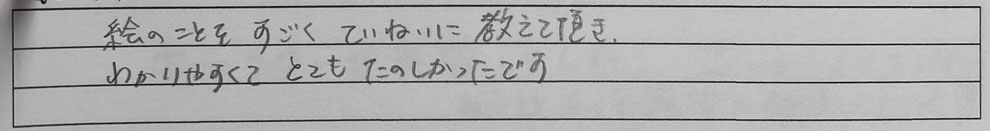 絵のことを すごく ていねいに 教えて頂き、
わかりやすくて とても たのしかったです